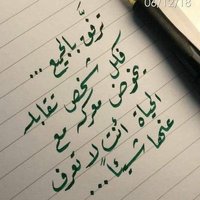 06/12/18
ترفق بالجميع ...
فكل شخص تقابله
يخوض معركة مع
الحياة أنت لا تعرف
عنها شيئاً ...